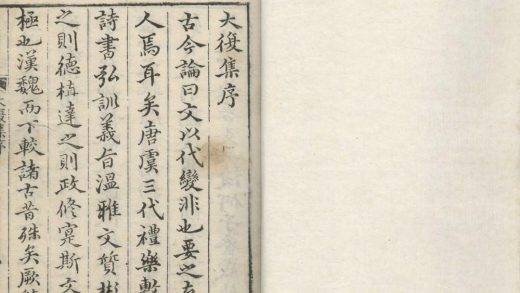 大復集序
古今論曰文以代變非也要之
人焉耳矣唐虞三代禮樂
詩書弘訓義旨溫雅文質彬
之則德植達之則政修寔斯文
極也漢魏而下較諸古昔殊矣厥
大復集序